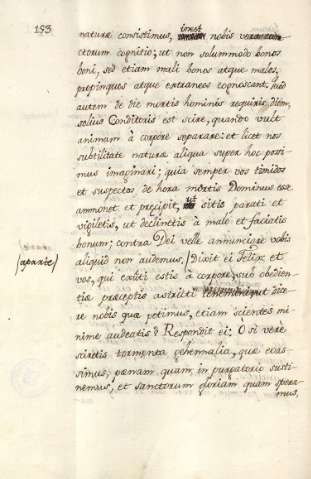 153
naturæ consistimus, inest nobis
ctorum cognitio; ut non solummodo bonos
boni, sed etiam mali bonos atque malos,
propinquos atque extraneos cognoscant; sed
autem de die mortis hominis requiris; diem,
solius Conditoris est scire, quando vult
animam à corpore separare: et licet nos
subtilitate naturæ aliqua super hoc possi-
mus imaginari; quia semper vos timidos
et suspectos de hora mortis Dominus esse
ammonet et precipit, ut sitis parati et
vigiletis, ut declinetis à malo et faciatis
bonum; contra Dei velle annunciare vobis
aliquid non audemus. Dixit ei Felix et
vos, qui exiisti estis à corpore, sub obedien-
tiæ præceptio dice-
re nobis quæ petimus, etiam scientes mi-
nime audeatis? Respondit ei: O si vere
sciretis tormenta gehennalia, quæ evas-
simus; pœnam quam in purgatorio susti-
nemus, et sanctorum gloriam quam spera-
mus,